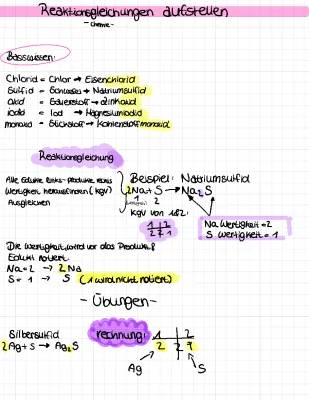 Reaktionsgleichungen aufstellen
- Chemie -
Basiswissen:
Chlorid = Chlor → Eisenchlorid
Sulfid = Schwefel → Natriumsulfid
oxid = Sauerstoff → Zinkoxid
iodid = Iod → Magnesiumiodid
monoxid = Stickstoff → Kohlenstoffmonoxid
Reaktionsgleichung
Alle Edukte links - Produkte rechts
Wertigkeit herausfinden (kgV)
Ausgleichen
Beispiel: Natriumsulfid
2Na + S → Na2S
1 2
kgV von 1&2:
1 2
2 2 1
Na Wertigkeit = 2
S Wertigkeit = 1
Die Wertigkeit wird vor das Produkt &
Edukt notiert.
Na = 2 → 2Na
S = 1 → S (1 wird nicht notiert)
- Übungen -
Silbersulfid
2Ag + S → Ag2S
rechnung:
1 2
2 2 1
Ag S